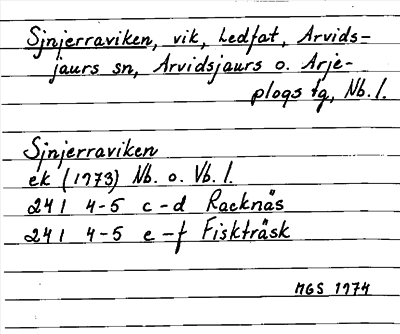 Sjnjerraviken, vik, Ledfat, Arvids-
jaurs sn, Arvidsjaurs o. Arje-
plogs tg, Nb. l.
Sjnjerraviken
ek (1973) Nb. o. Vb. l.
241 4-5 c-d Racknäs
241 4-5 e-f Fiskträsk
MGS 1974